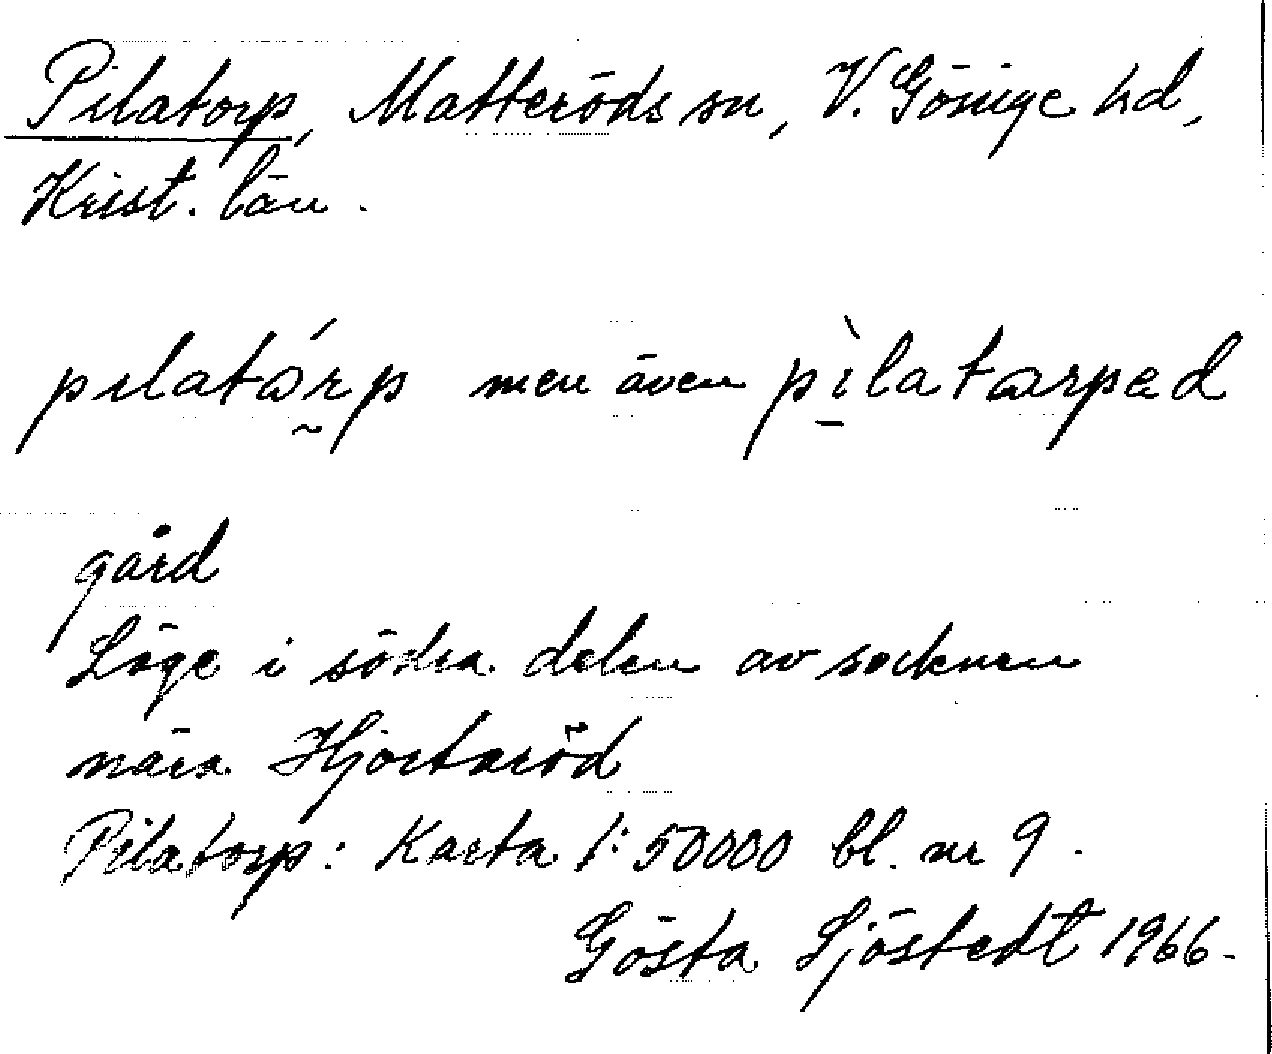 Pilatorp, Matteröds sn, V. Göinge hd,
Krist. län.
pilatárp men även pìlatarpəd
gård
Läge i södra delen av socknen
nära Hjortaröd
Pilatorp: Karta 1:50000 bl. nr 9.
Gösta Sjöstedt 1966.